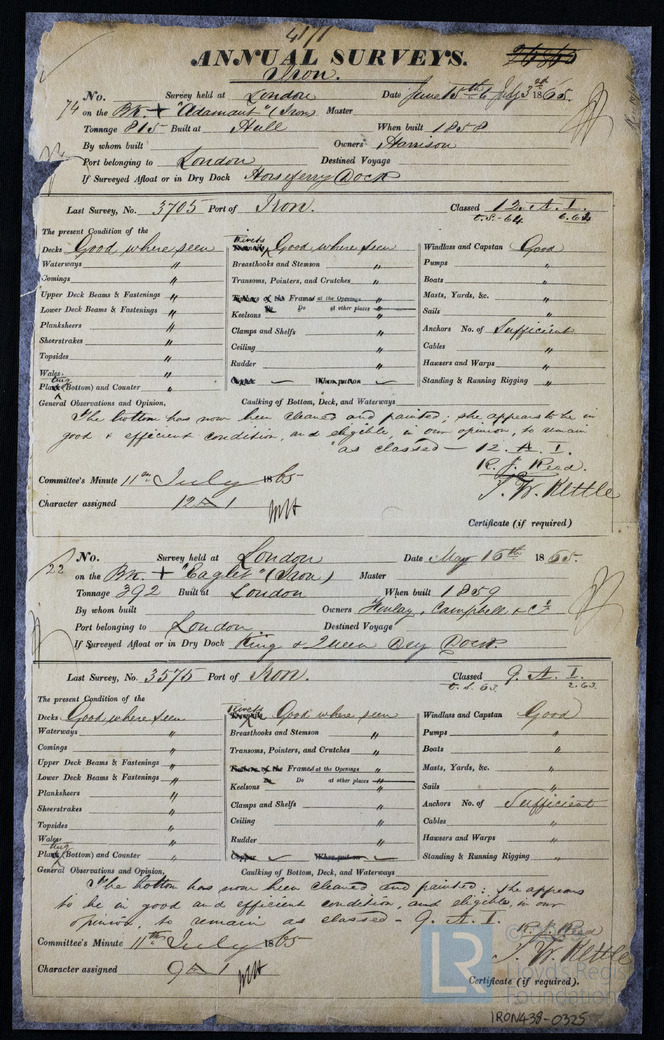 ANNUAL SURVEYS.
Iron.
No. Survey held at London Date June 15th & July 3rd 1865.
74 on the Bk. + "Adamant" (Iron) Master
Tonnage 815 Built at Hull When built 1858
By whom built Owners Harrison
Port belonging to London Destined Voyage
If Surveyed Afloat or in Dry Dock Horseferry Dock
Last Survey, No. 3705 Port of Iron. Classed 12. A. I.
t.s.-64 6.62
The present Condition of the
Decks Good where seen Rivets Good where seen Windlass and Capstan Good
Waterways " Breasthooks and Stemson " Pumps "
Comings " Transoms, Pointers, and Crutches " Boats "
Upper Deck Beams & Fastenings " Frames at the Openings " Masts, Yards, &c. "
Lower Deck Beams & Fastenings " Keelsons Do at other places " Sails "
Planksheers " Clamps and Shelfs " Anchors No. of Sufficient
Sheerstrakes " Ceiling " Cables "
Topsides " Rudder " Hawsers and Warps "
Wales " Copper When put on Standing & Running Rigging "
Plating (Bottom) and Counter "
General Observations and Opinion, Caulking of Bottom, Deck, and Waterways
The bottom has now been cleaned and painted; she appears to be in
good & efficient condition, and eligible, in our opinion, to remain
as classed - 12. A. I.
R. J. Reed.
T. W. Kettle
Committee's Minute 11th July 1865
Character assigned 12 A 1
Certificate (if required)
No. Survey held at London Date May 16th 1865.
22 on the Bk. + "Eaglet" (Iron) Master
Tonnage 392 Built at London When built 1859
By whom built Owners Henlay, Campbell & Co
Port belonging to London Destined Voyage
If Surveyed Afloat or in Dry Dock King & Queen Dry Dock.
Last Survey, No. 3575 Port of Iron. Classed 9. A. I.
t.s. 63. 2.63.
The present Condition of the
Decks Good where seen Rivets Good where seen Windlass and Capstan Good
Waterways " Breasthooks and Stemson " Pumps "
Comings " Transoms, Pointers, and Crutches " Boats "
Upper Deck Beams & Fastenings " Frames at the Openings " Masts, Yards, &c. "
Lower Deck Beams & Fastenings " Keelsons Do at other places " Sails "
Planksheers " Clamps and Shelfs " Anchors No. of Sufficient
Sheerstrakes " Ceiling " Cables "
Topsides " Rudder " Hawsers and Warps "
Wales " Copper When put on Standing & Running Rigging "
Plating (Bottom) and Counter "
General Observations and Opinion, Caulking of Bottom, Deck, and Waterways
The bottom has now been cleaned and painted; she appears
to be in good and efficient condition, and eligible, in our
opinion, to remain as classed - 9. A. I.
R. J. Reed
T. W. Kettle
Committee's Minute 11th July 1865
Character assigned 9 A 1
Certificate (if required).
LR
Lloyd's Register
Foundation
IRON438-0325